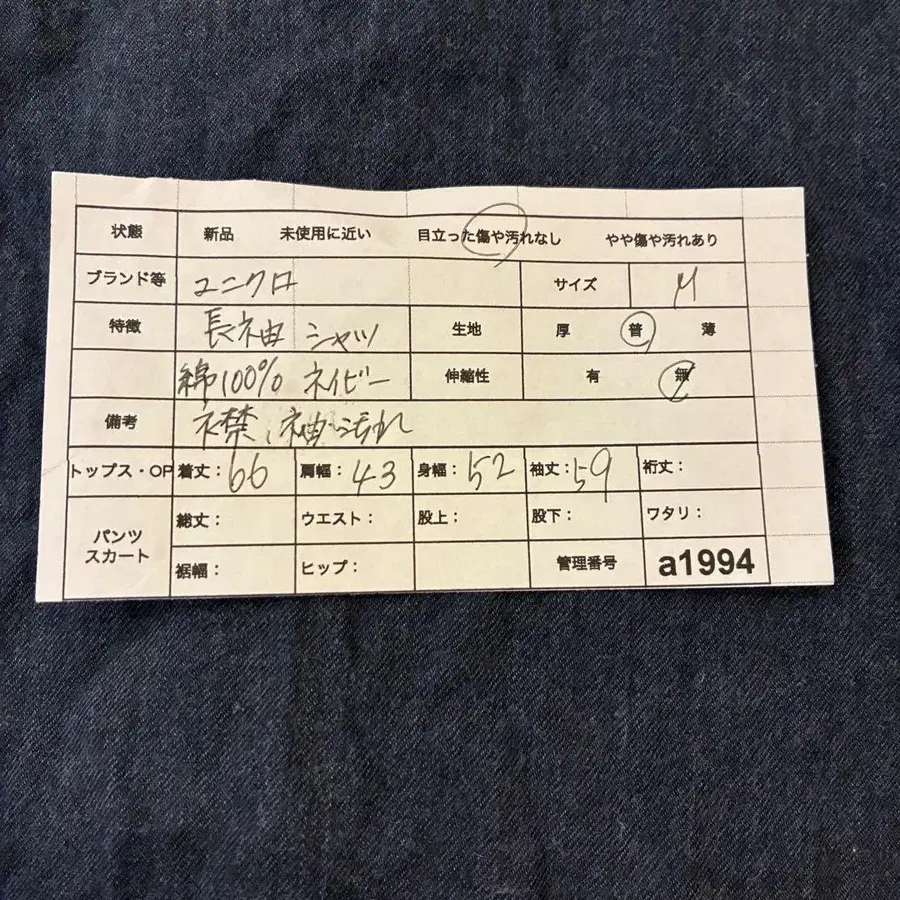 状態 新品 未使用に近い 目立った傷や汚れなし やや傷や汚れあり
ブランド等 ユニクロ サイズ M
特徴 長袖 シャツ 生地 厚 普 薄
綿100% ネイビー 伸縮性 有 無
備考 襟、袖汚れ
トップス・OP 着丈：66 肩幅：43 身幅：52 袖丈：59 裄丈：
パンツ スカート 総丈： ウエスト： 股上： 股下： ワタリ：
裾幅： ヒップ： 管理番号 a1994